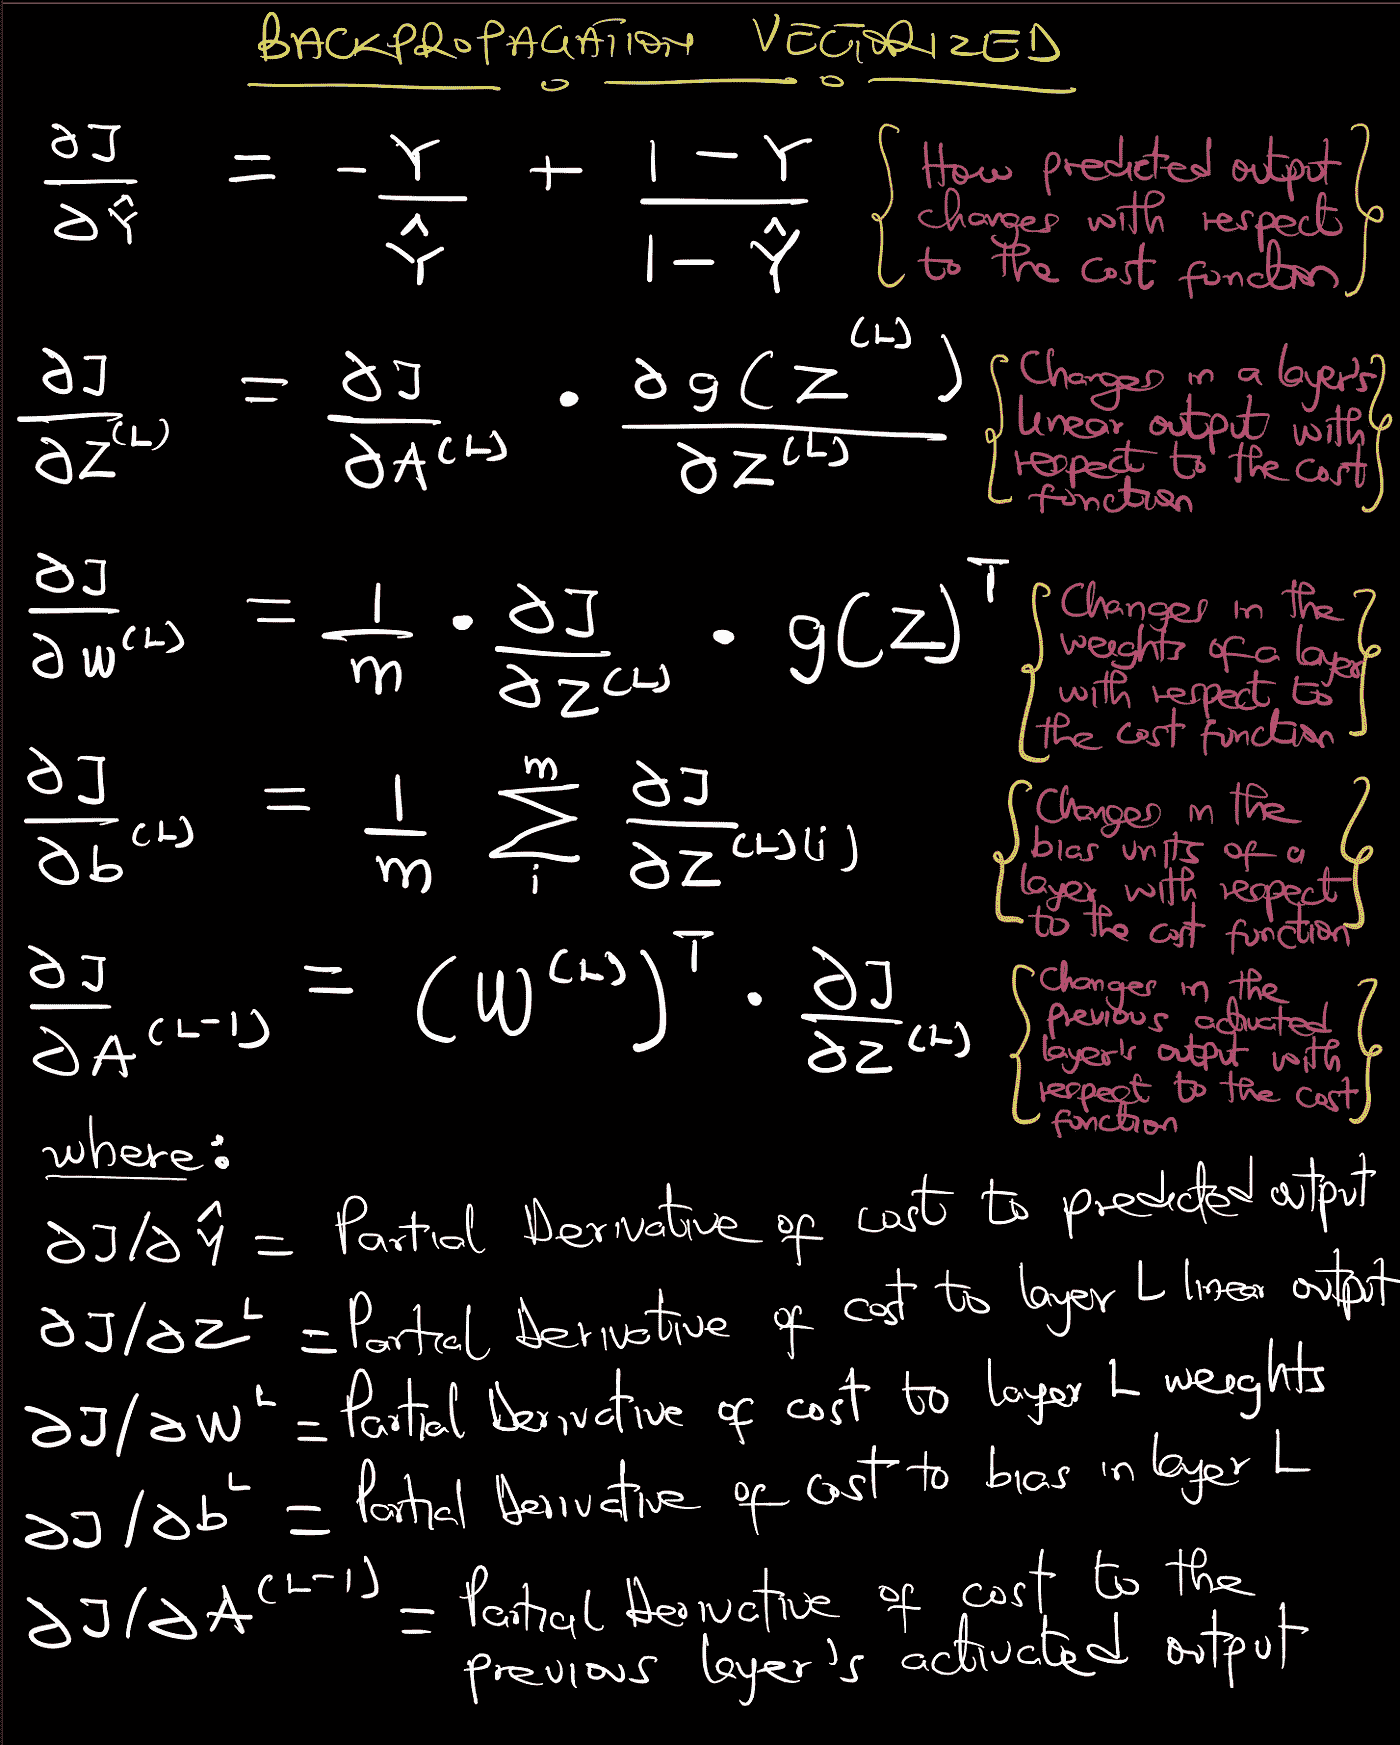 BACKPROPAGATION VECTORIZED
∂J/∂Ŷ = - Y/Ŷ + (1 - Y)/(1 - Ŷ)
{How predicted output
changes with respect
to the cost function}
∂J/∂Z^(L) = ∂J/∂A^(L) • ∂g(Z^(L))/∂Z^(L)
{Changes in a layer's
linear output with
respect to the cost
function}
∂J/∂W^(L) = 1/m • ∂J/∂Z^(L) • g(Z)^T
{Changes in the
weights of a layer
with respect to
the cost function}
∂J/∂b^(L) = 1/m ∑_i^m ∂J/∂Z^(L)(i)
{Changes in the
bias units of a
layer with respect
to the cost function}
∂J/∂A^(L-1) = (W^(L))^T • ∂J/∂Z^(L)
{Changes in the
previous activated
layer's output with
respect to the cost
function}
where:
∂J/∂Ŷ = Partial Derivative of cost to predicted output
∂J/∂Z^L = Partial Derivative of cost to layer L linear output
∂J/∂W^L = Partial Derivative of cost to layer L weights
∂J/∂b^L = Partial Derivative of cost to bias in layer L
∂J/∂A^(L-1) = Partial Derivative of cost to the
previous layer's activated output